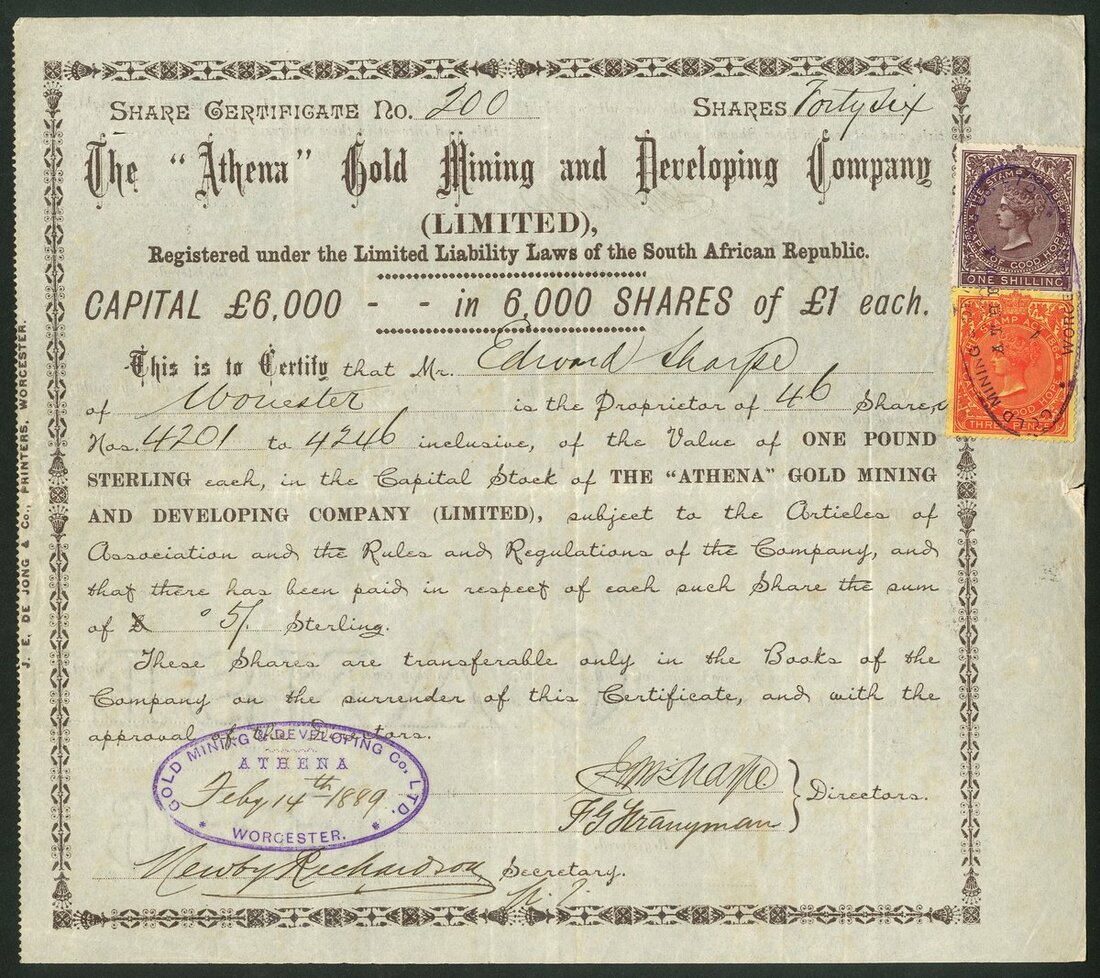 SHARE CERTIFICATE No. 200 SHARES Forty six
The "Athena" Gold Mining and Developing Company
(LIMITED),
Registered under the Limited Liability Laws of the South African Republic.
CAPITAL £6,000 - - in 6,000 SHARES of £1 each.
This is to Certify that Mr. Edward Sharpe
of Worcester is the Proprietor of 46 Shares
Nos. 4201 to 4246 inclusive, of the Value of ONE POUND
STERLING each, in the Capital Stock of THE "ATHENA" GOLD MINING
AND DEVELOPING COMPANY (LIMITED), subject to the Articles of
Association and the Rules and Regulations of the Company, and
that there has been paid in respect of each such Share the sum
of £ 5/ Sterling.
These Shares are transferable only in the Books of the
Company on the surrender of this Certificate, and with the
approval of the Directors.
GOLD MINING & DEVELOPING Co, LTD.
ATHENA
Feby 14th 1889
WORCESTER.
Sharpe
Directors.
Newby Richardson Secretary.
J. E. DE JONG & Co., PRINTERS, WORCESTER.
THE STAMP ACT 1864
CAPE OF GOOD HOPE
ONE SHILLING
THE STAMP ACT 1864
GOOD HOPE
THREE PENCE